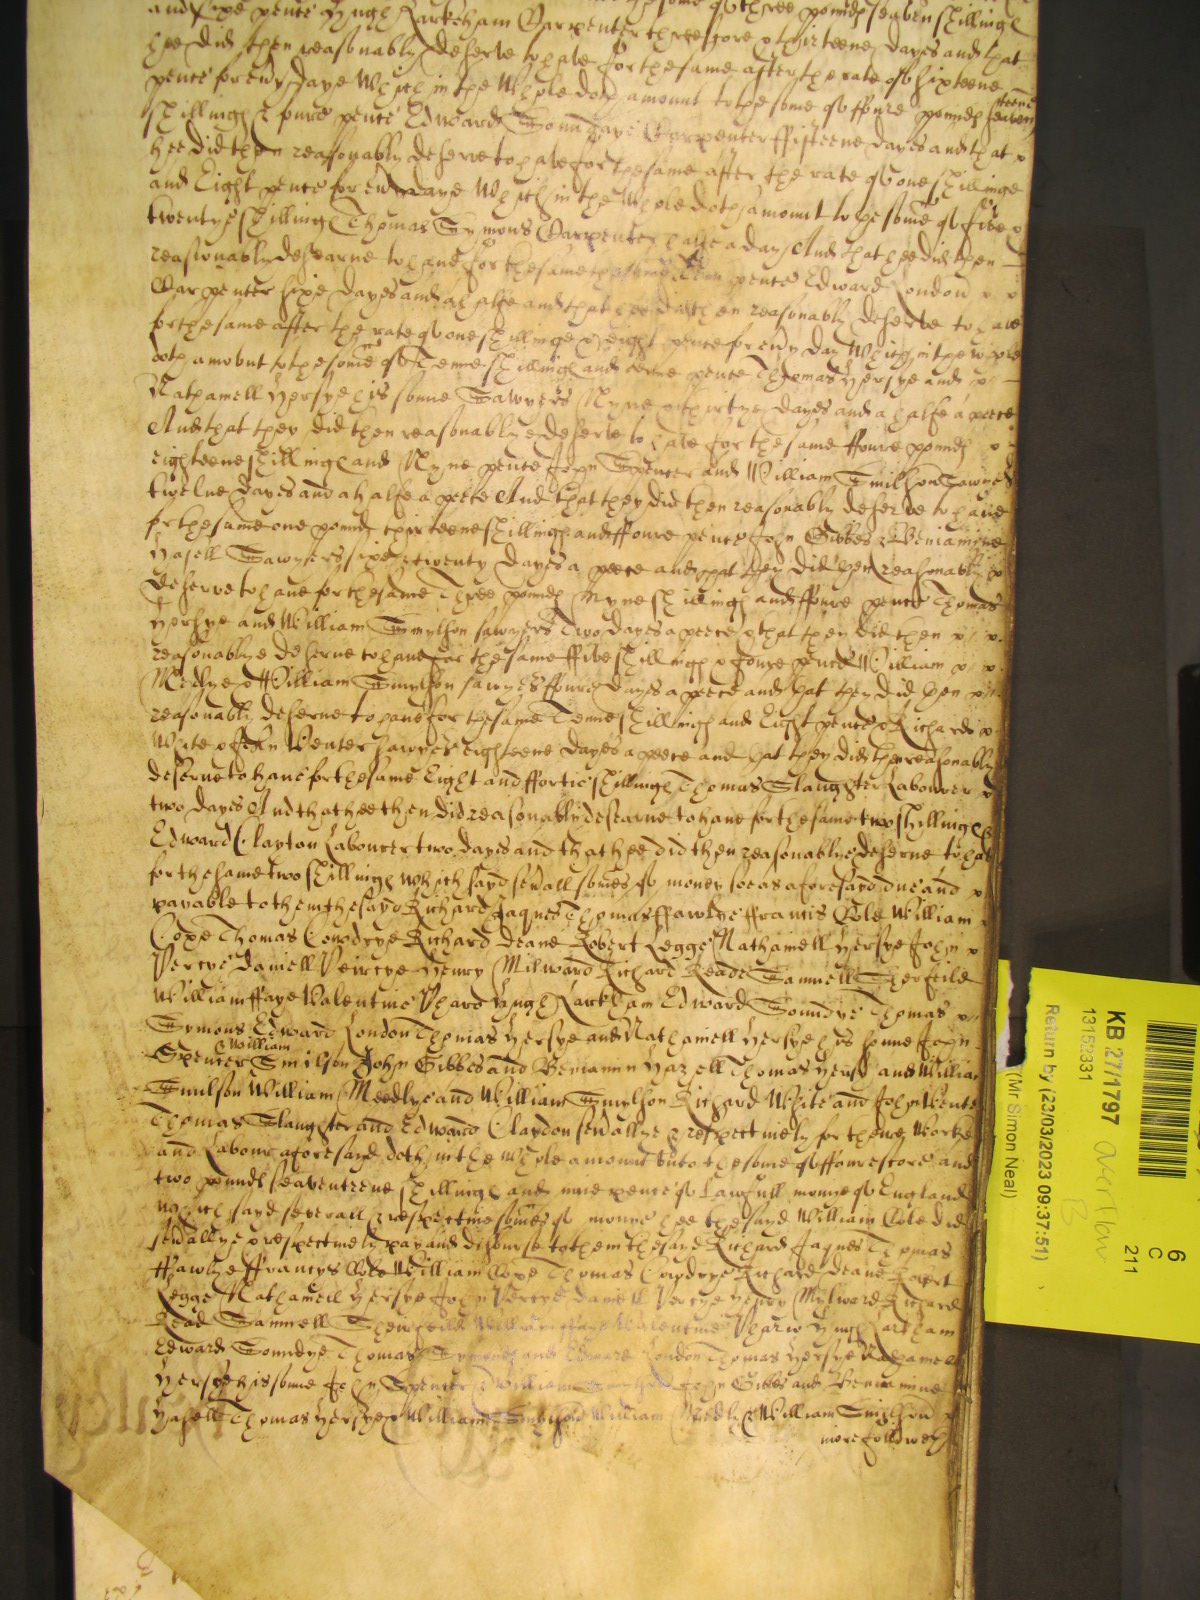 and sixe pence Hugh Larkeham Carpenter threescore & thirteene dayes and that
hee did then reasonably deserve to have for the same after the rate of sixteene
pence for every daye Which in the Whole doth amount to the some of ffoure pounds seaventeene
shillings & foure pence Edward Sounдye Carpenter ffifteene dayes and that
hee did then reasonably deserve to have for the same after the rate of one shillinge
and Eight pence for every daye Which in the Whole doth amount to the some of five &
twentye shillings Thomas Symons Carpenter halfe a day And that hee did then
reasonably deserue to haue for the same pence Edward London
Carpenter sixe dayes and a halfe and that hee did then reasonably deserve to have
for the same after the rate of one shillinge & eight pence for every day Which in the whole
doth amount to the some of Tenne shillings and tenne pence Thomas Hersye and
Nathaniell Hersye his sonne Sawyers Nyne & thirtye dayes and a halfe a peece
And that they did then reasonablye deserve to have for the same ffoure pounds
eighteene shillings and Nyne pence John Spencer and William Smilson Sawyers
twelue dayes and a halfe a peece And that they did then reasonably deserve to haue
for the same one pound thirteene shillings and ffoure pence John Gibbes & Beniamine
Hasell Sawyers sixe & twenty dayes a peece and that they did then reasonably
deserve to haue for the same Three pounds Nyne shillings and ffoure pence Thomas
Hersye and William Smylson sawyers Two dayes a peece & that they did then
reasonablye deserue to haue for the same ffive shillings & foure pence William
Medlye & William Smylson sawyers ffoure dayes a peece and that they did then
reasonably deserue to haue for the same Tenne shillings and Eight pence & Richard
White & John Wenter sawyers eighteene dayes a peece and that they did then reasonably
deserue to haue for the same Eight and ffortie shillings Thomas Slaughter Labourer
two dayes And that hee then did reasonably deserue to haue for the same two shillings &
Edward Clayton Labourer two dayes and that hee did then reasonablye deserue to haue
for the same two shillings Which sayd severall somes of money soe as aforesayd due and
payable to them the sayd Richard Jaques Thomas ffawlye ffrancis Cole William
Cope Thomas Cowdrye Richard Deane Robert Legge Nathaniell Hersye John
Vercye Daniell Veircye Henry Milward Richard Reade Samuell Therfeild
William ffaye Valentine Hugh Larkham Edward Soundye Thomas
Symons Edward London Thomas Hersye and Nathaniell Hersye his sonne John
Spencer William Smilson John Gibbes and Beniamin Hazell Thomas Hersye and William
Smilson William Meedlye and William Smylson Richard White and John Wenter
Thomas Slaughter and Edward Claydon severallye & respectiuely for theire Worke
and Labour aforesayd doth in the whole amount vnto the some of ffourescore and
two pounds seaventeene shillings and nine pence of Lawfull monye of England
Which sayd severall & respective somes of monye hee the sayd William Cole did
severallye & respectiuely pay and disburse to them the sayd Richard Jaques Thomas
ffawlye ffrancys Cole William Cope Thomas Cowdrye Richard Deane Robert
Legge Nathaniell Hersye John Vercye Daniell Vercye Henry Mylward Richard
Read Samuell Valentine Hugh Larkham
Edward Soundye Thomas Symons and Edward London Thomas Hersye Nathaniell
Hersye his sonne John Spencer & William John Gibbs and Beniamine
Hasell Thomas Hersye & William Smylson William Medly & William Smylson
more followeth
KB 27/1797
13152331
Return by (23/03/2023 09:37:51)
(Mr Simon Neal)
overflow
B
6
C
211